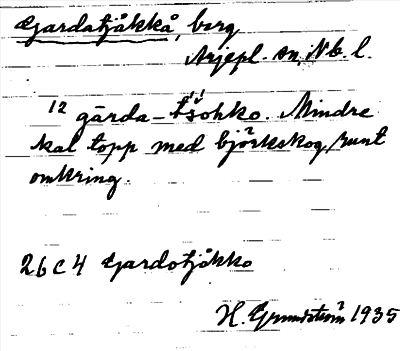 Gardatjåkkå, berg
Arjepl. sn, Nb. l.
12 gārda-tšohko. Mindre
kal topp med björkskog runt
omkring.
26 C 4 Gardotjåkko
H. Grundström 1935